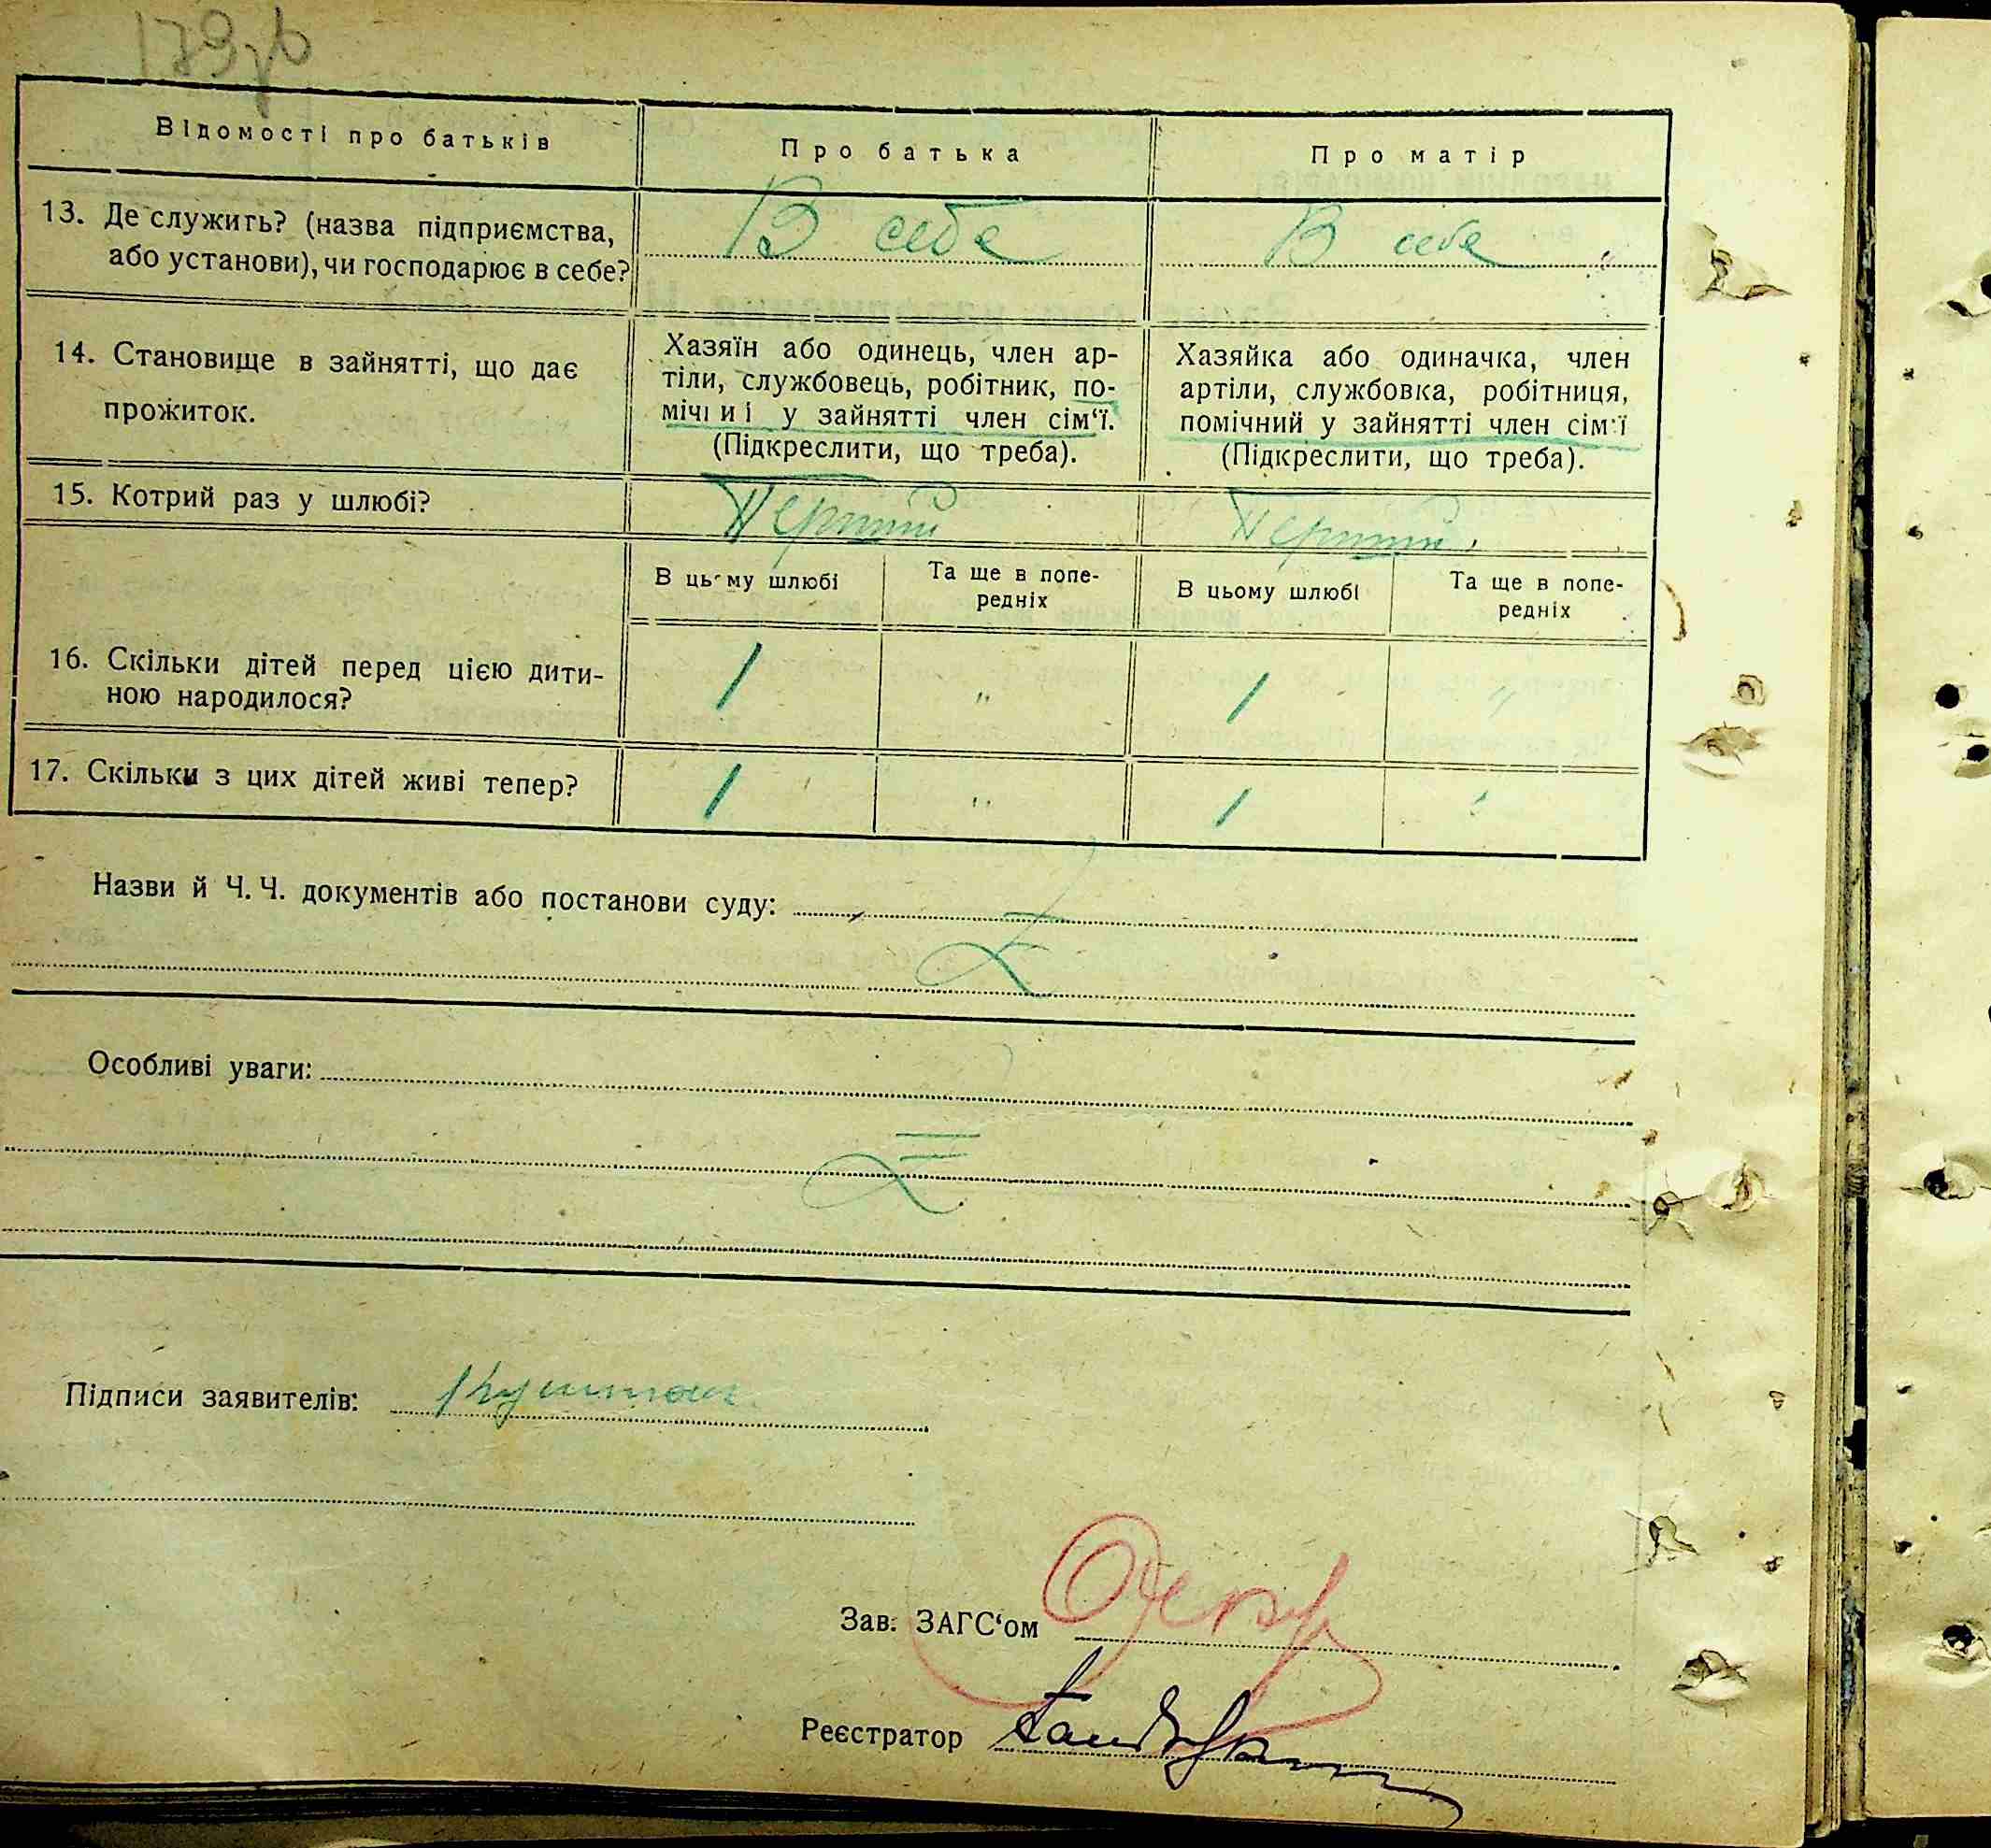 179зв
Відомості про батьків
Про батька
Про матір
13. Де служить? (назва підприємства,
або установи), чи господарює в себе?
В себе
В себе
14. Становище в зайнятті, що дає
прожиток.
Хазяїн або одинець, член ар-
тіли, службовець, робітник, по-
мічниі у зайнятті член сім‘ї.
(Підкреслити, що треба).
Хазяйка або одиначка, член
артіли, службовка, робітниця,
помічний у зайнятті член сім‘ї
(Підкреслити, що треба).
15. Котрий раз у шлюбі?
Перший
Перший
В цьому шлюбі
Та ще в попе-
редніх
В цьому шлюбі
Та ще в попе-
редніх
16. Скільки дітей перед цією дити-
ною народилося?
1 " 1 "
17. Скільки з цих дітей живі тепер?
1 " 1 "
Назви й Ч. Ч. документів або постанови суду:
Особливі уваги:
Підписи заявителів:
Зав. ЗАГС‘ом
Реєстратор